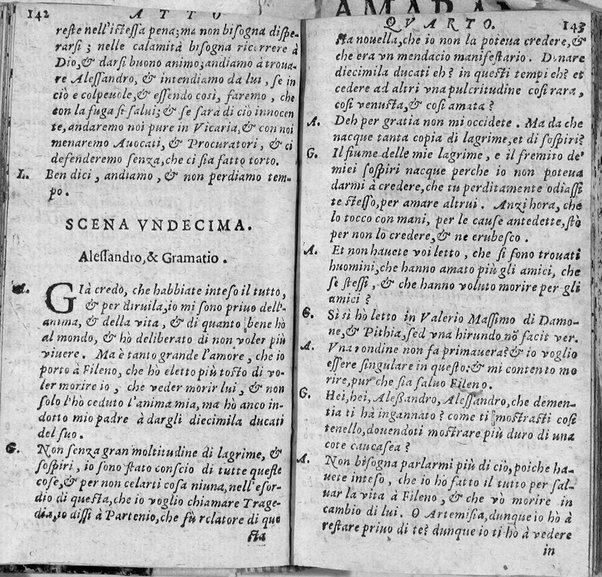 AMARAN
142 ATTO
reste nell'istessa pena; ma non bisogna dispe-
rarsi; nelle calamità bisogna ricorrere à
Dio, & darsi buono animo; andiamo à troua-
re Alessandro, & intendiamo da lui, se in
ciò e colpeuole, & essendo così, faremo, che
con la fuga si salui; & se sarà di ciò innocen
te, andaremo noi pure in Vicaria, & con noi
menaremo Auocati, & Procuratori, & ci
defenderemo senza, che ci sia fatto torto.
L. Ben dici, andiamo, & non perdiamo tem-
po.
SCENA VNDECIMA.
Alessandro, & Gramatio.
A. GIà credo, che habbiate inteso il tutto,
& per diruila, io mi sono priuo dell'-
anima, & della vita, & di quanto bene hò
al mondo, & hò deliberato di non voler più
viuere. Ma è tanto grande l'amore, che io
porto à Fileno, che hò eletto più tosto di vo-
ler morire io, che veder morir lui, & non
solo l'hò ceduto l'anima mia, ma hò anco in-
dotto mio padre à dargli diecimila ducati
del suo.
G. Non senza gran moltitudine di lagrime, &
sospiri, io sono stato conscio di tutte queste
cose, & per non celarti cosa niuna, nell'esor-
dio di questa, che io voglio chiamare Trage-
dia, io dissi à Partenio, che fù relatore di que
sta
QVARTO. 143
sta nouella, che io non la poteua credere, &
che era vn mendacio manifestario. Donare
diecimila ducati eh? in questi tempi eh? et
cedere ad altri vna pulcritudine così rara,
così venusta, & così amata?
A. Deh per gratia non mi occidete. Ma da che
nacque tanta copia di lagrime, et di sospiri?
G. Il fiume delle mie lagrime, e il fremito de'
miei sospiri nacque perche io non poteua
darmi à credere, che tu perditamente odiassi
te stesso, per amare altrui. Anzi hora, che
lo tocco con mani, per le cause antedette, stò
per non lo credere, & ne erubesco.
A. Et non hauete voi letto, che si sono trouati
huomini, che hanno amato più gli amici, che
se stessi, & che hanno voluto morire per gli
amici?
G. Si si hò letto in Valerio Massimo di Damo-
ne, & Pithia, sed vna hirundo nõ facit ver.
A. Vna rondine non fa primauera? & io voglio
essere singulare in questo: & mi contento mo
rire, pur che sia saluo Fileno.
G. Hei, hei, Alessandro, Alessandro, che demen-
tia ti hà ingannato? come ti mostrasti così
tenello, douendoti mostrare più duro di una
cote caucasea?
A. Non bisogna parlarmi più di ciò, poiche ha-
uete inteso, che io hò fatto il tutto per sal-
uar la vità à Fileno, & che vò morire in
cambio di lui. O Artemisia, dunque io hò à
restare priuo di te? dunque io ti hò à vedere
in